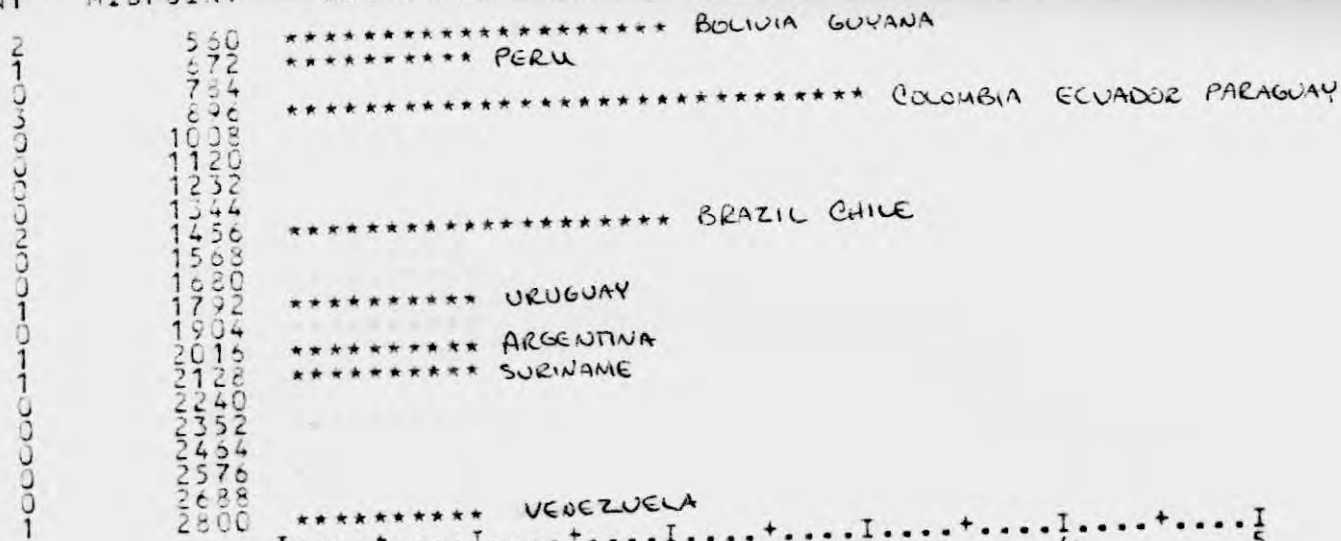 MIDPOINT
2 560 ******************** BOLIVIA GUYANA
1 672 ********** PERU
0 784
3 896 ****************************** COLOMBIA ECUADOR PARAGUAY
0 1008
0 1120
0 1232
0 1344
2 1456 ******************** BRAZIL CHILE
0 1568
0 1680
1 1792 ********** URUGUAY
0 1904
1 2016 ********** ARGENTINA
1 2128 ********** SURINAME
0 2240
0 2352
0 2464
0 2576
0 2688
1 2800 ********** VENEZUELA
I....+....I....+....I....+....I....+....I....+....I